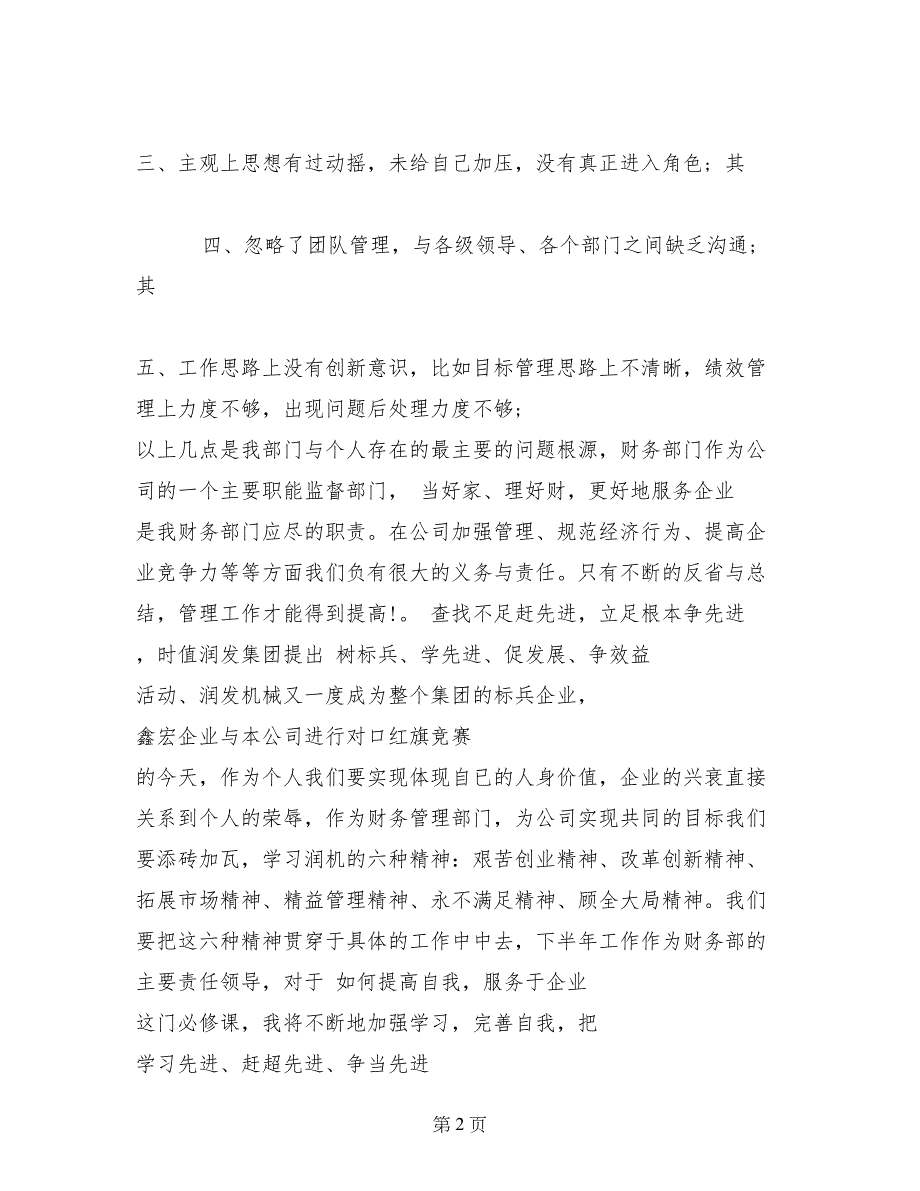 三、主观上思想有过动摇，未给自己加压，没有真正进入角色；其
四、忽略了团队管理，与各级领导、各个部门之间缺乏沟通；
其
五、工作思路上没有创新意识，比如目标管理思路上不清晰，绩效管
理上力度不够，出现问题后处理力度不够;
以上几点是我部门与个人存在的最主要的问题根源，财务部门作为公
司的一个主要职能监督部门， 当好家、理好财，更好地服务企业
是我财务部门应尽的职责。在公司加强管理、规范经济行为、提高企
业竞争力等等方面我们负有很大的义务与责任。只有不断的反省与总
结，管理工作才能得到提高!。 查找不足赶先进，立足根本争先进
，时值润发集团提出 树标兵、学先进、促发展、争效益
活动、润发机械又一度成为整个集团的标兵企业，
鑫宏企业与本公司进行对口红旗竞赛
的今天，作为个人我们要实现体现自己的人身价值，企业的兴衰直接
关系到个人的荣辱，作为财务管理部门，为公司实现共同的目标我们
要添砖加瓦，学习润机的六种精神：艰苦创业精神、改革创新精神、
拓展市场精神、精益管理精神、永不满足精神、顾全大局精神。我们
要把这六种精神贯穿于具体的工作中中去，下半年工作作为财务部的
主要责任领导，对于 如何提高自我，服务于企业
这门必修课，我将不断地加强学习，完善自我，把
学习先进、赶超先进、争当先进
第 2 页